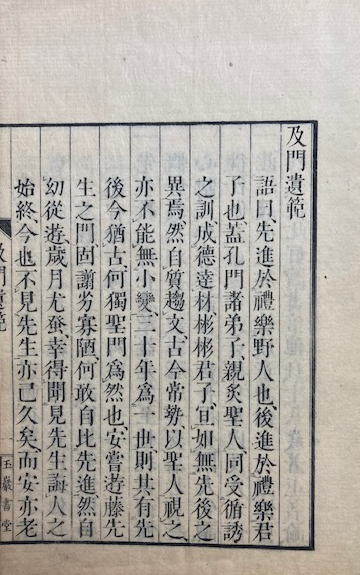 及門遺範
語曰、先進於禮樂野人也、後進於禮樂君
子也、蓋孔門諸弟子、親炙聖人、同受循誘
之訓、成德達材、彬彬君子、亘如無先後之
異焉、然自質趨文、古今常勢、以聖人視之、
亦不能無小變、三十年爲一世、則其有先
後、今猶古、何獨聖門爲然也、安嘗遊藤先
生之門、固謭劣寡陋、何敢自比先進、然自
幼從遊、歲月尤蚤、幸得聞見先生誨人之
始終、今也不見先生、亦已久矣、而安亦老
及門遺範
玉巖書堂